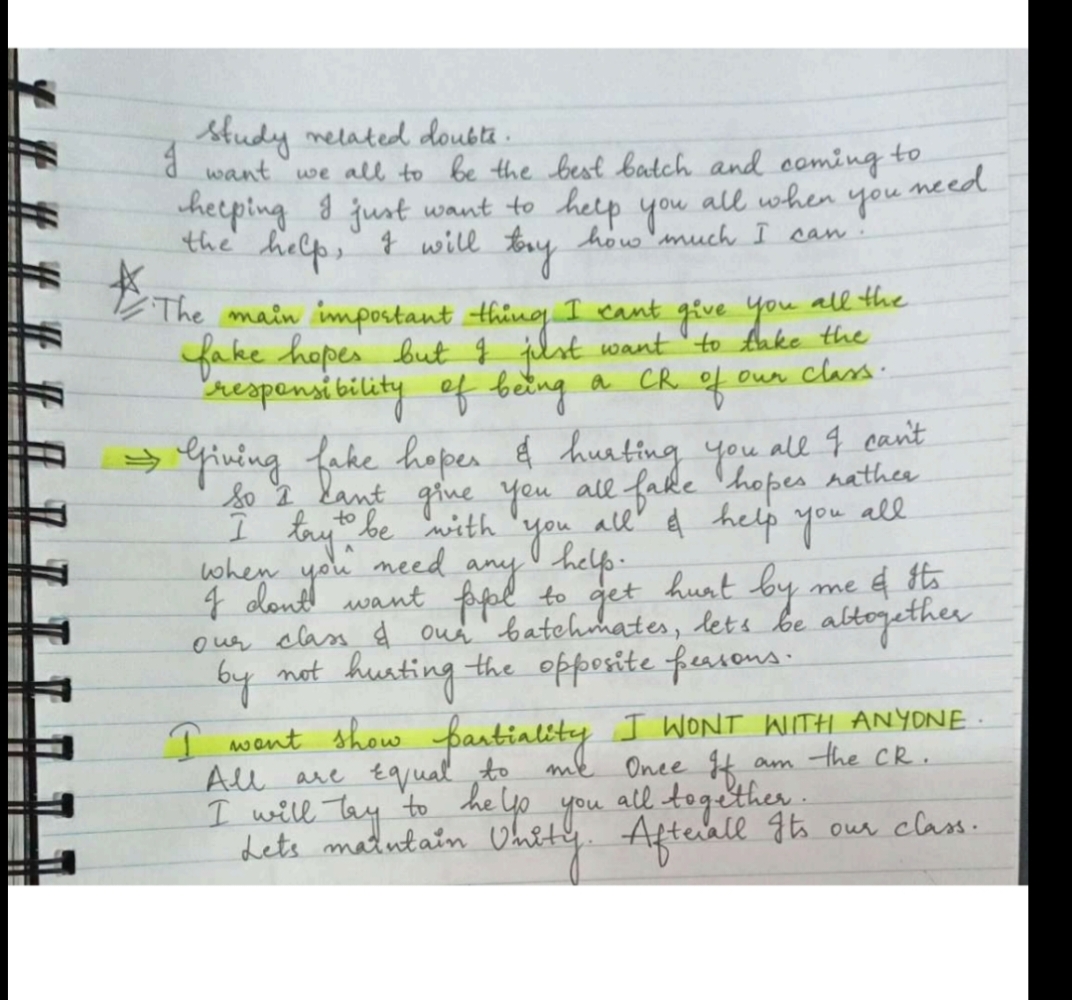 study related doubts.
I want we all to be the best batch and coming to
helping I just want to help you all when you need
the help, I will try how much I can.
The main important thing I cant give you all the
fake hopes but I just want to take the
responsibility of being a CR of our class.
⇒ Giving fake hopes & hurting you all I can't
So I cant give you all fake hopes rather
I try to be with you all & help you all
when you need any help.
I dont want to get hurt by me & Its
our class & our batchmates, lets be altogether
by not hurting the opposite persons.
I wont show partiality I WONT WITH ANYONE.
All are Equal to me Once If am the CR.
I will Try to help you all together.
Lets maintain Unity. Afterall Its our class.